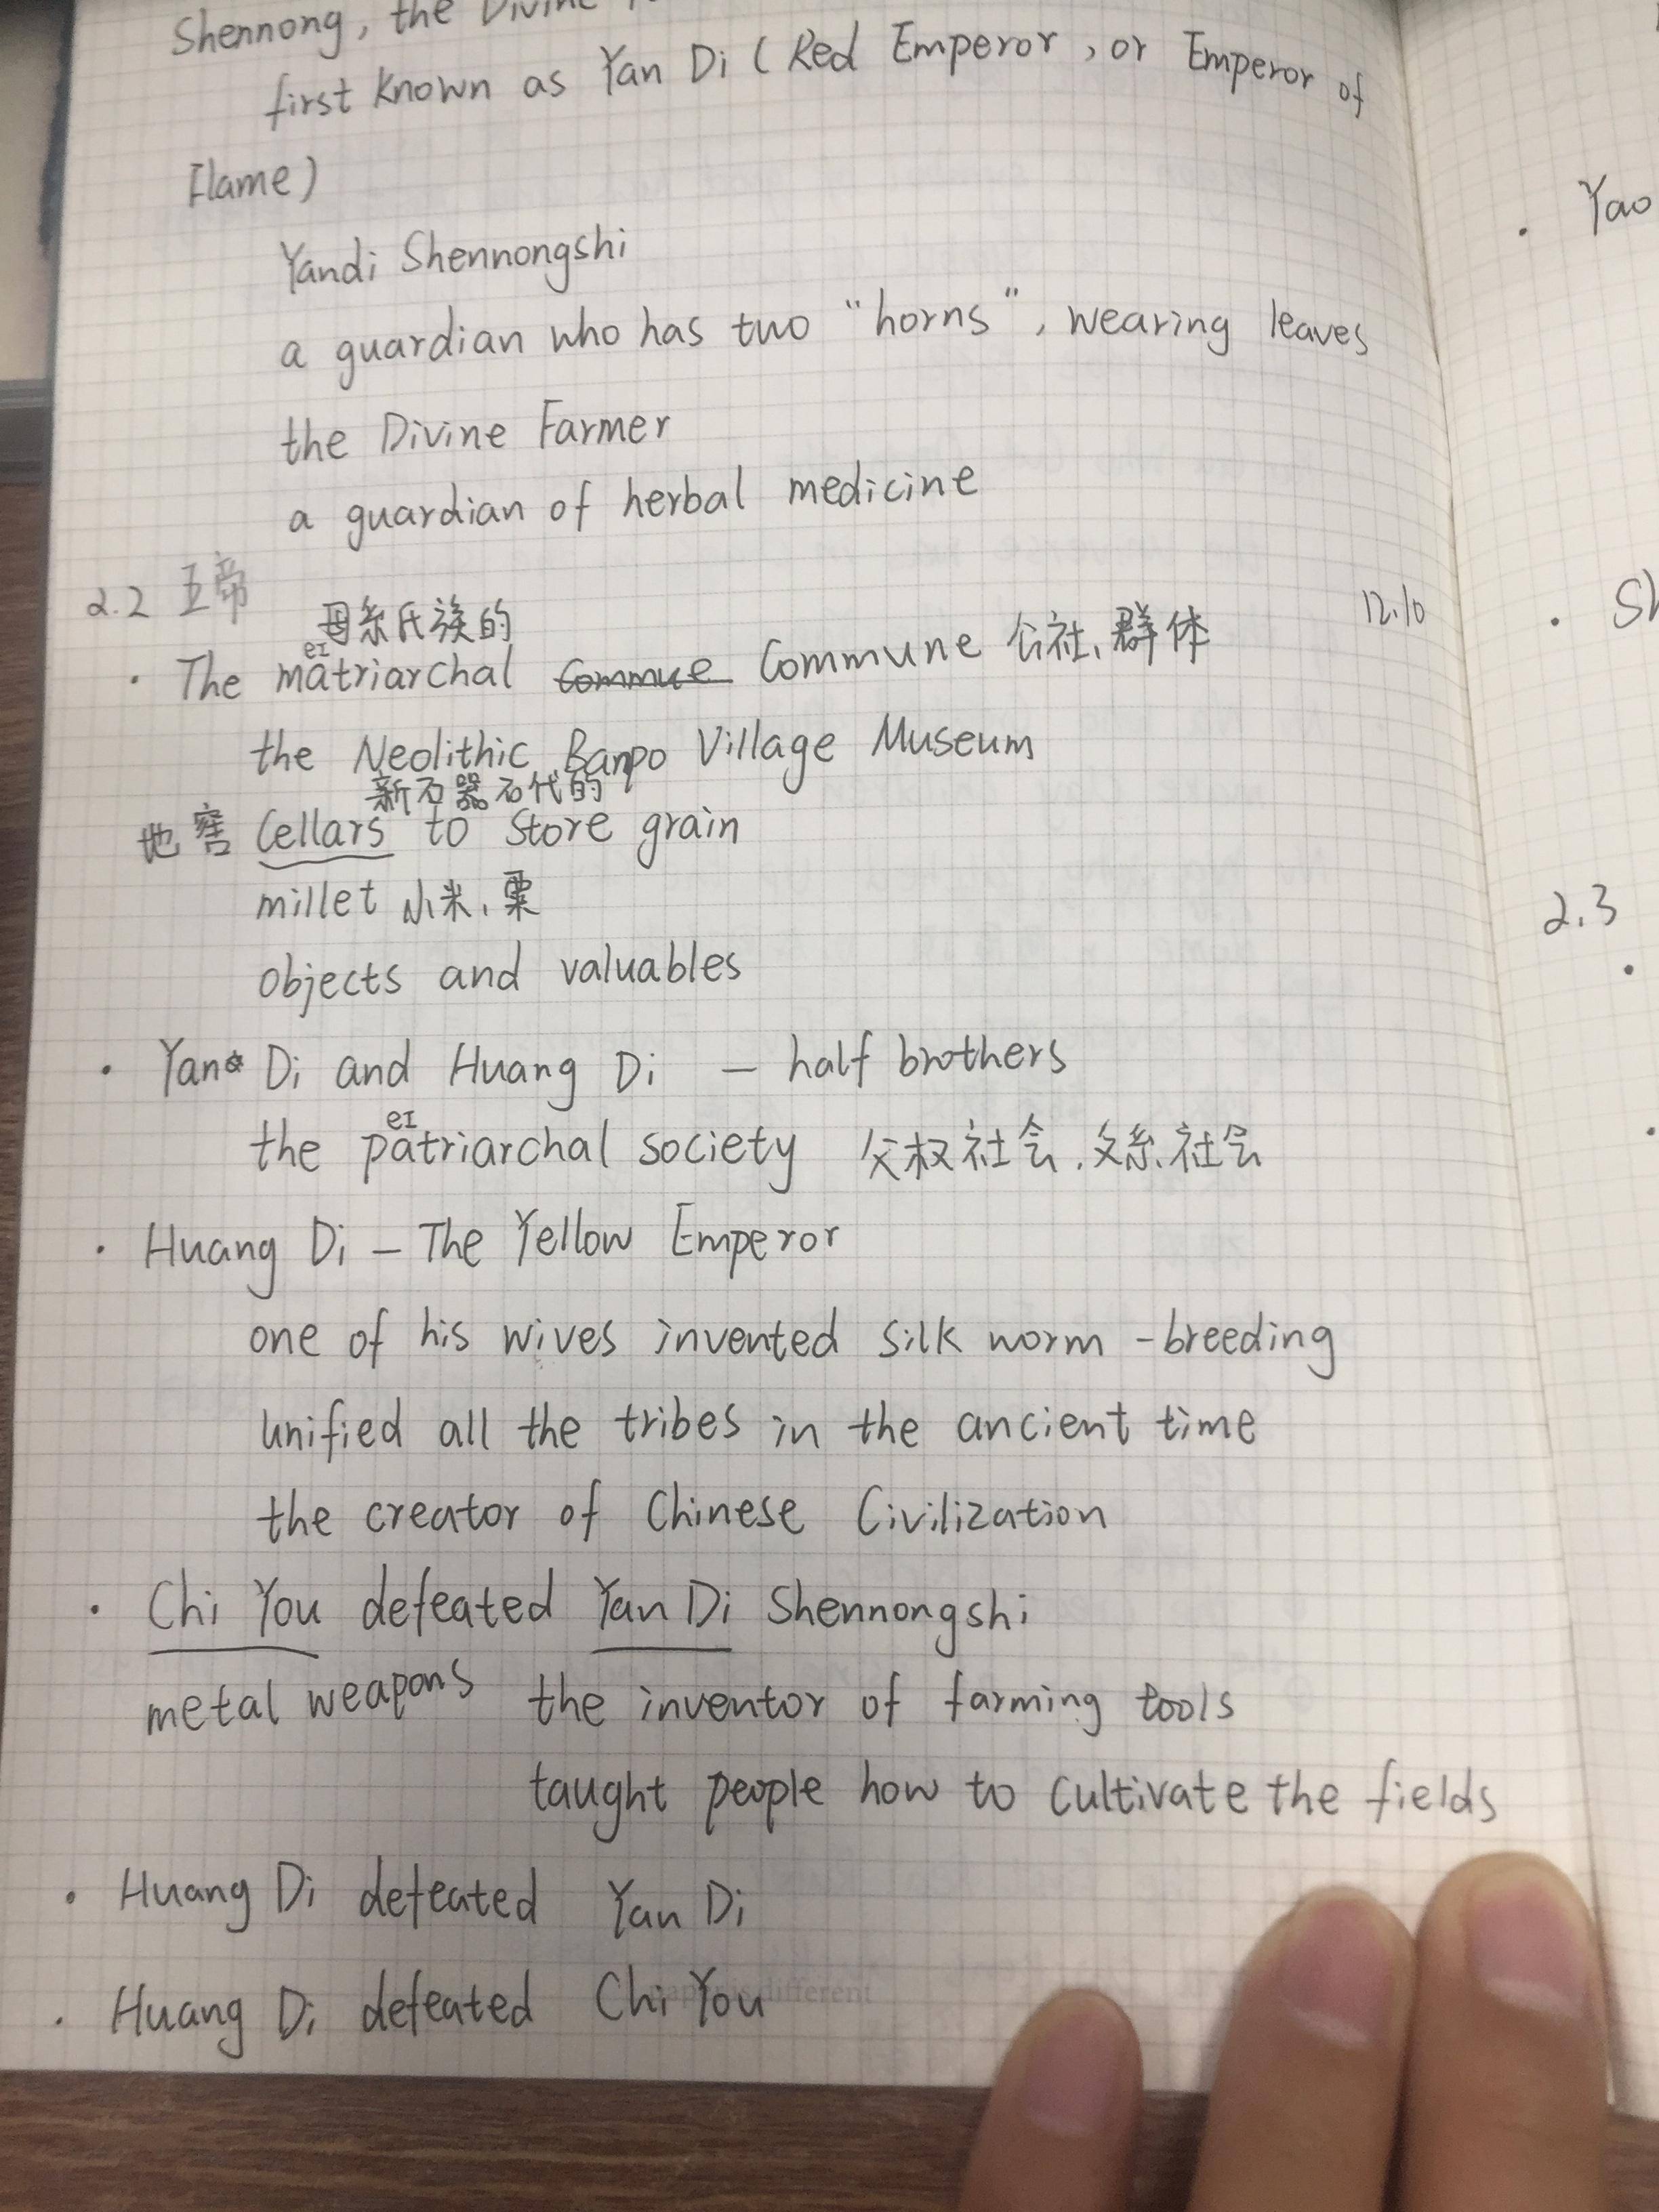 Shennong, the Divine
first known as Yan Di ( Red Emperor, or Emperor of
Flame)
Yandi Shennongshi
a guardian who has two "horns", wearing leaves
the Divine Farmer
a guardian of herbal medicine
2.2 五帝
12.10
母系氏族的
eɪ
· The matriarchal commue Commune 公社、群体
the Neolithic Banpo Village Museum
新石器石代的
地窖 Cellars to store grain
millet 小米、粟
objects and valuables
· Yan Di and Huang Di — half brothers
eɪ
the patriarchal society 父权社会、父系社会
· Huang Di — The Yellow Emperor
one of his wives invented silk worm -breeding
unified all the tribes in the ancient time
the creator of Chinese Civilization
· Chi You defeated Yan Di Shennongshi
metal weapons the inventor of farming tools
taught people how to cultivate the fields
· Huang Di defeated Yan Di
· Huang Di defeated Chi You
· Yao
2.3